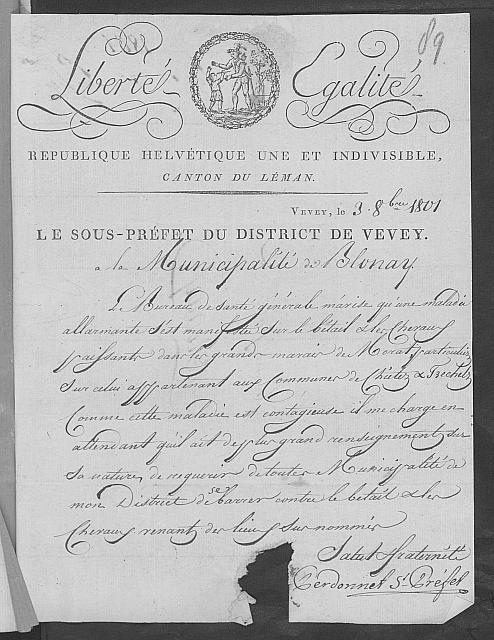 89
Liberté Egalité
REPUBLIQUE HELVÉTIQUE UNE ET INDIVISIBLE,
CANTON DU LÉMAN.
VEVEY, le 3. 8bre 1801
LE SOUS-PRÉFET DU DISTRICT DE VEVEY.
a la Municipalité de Blonay.
Le Bureau de santé générale m'avise qu'une maladie
allarmante s'est manifesté sur le bétail & les Chevaux
paissants dans les grands marais de Morat particulier
sur celui appartenant aux Communes de Chiètre &
Comme cette maladie est contagieuse il me charge en
attendant qu'il ait de plus grand renseignement sur
sa nature de requerir de toutes Municipalité de
mon District de se barrer contre le betail & les
Chevaux venant des lieux sus nommés
Salut & fraternité
Perdonnet Ss Préfet